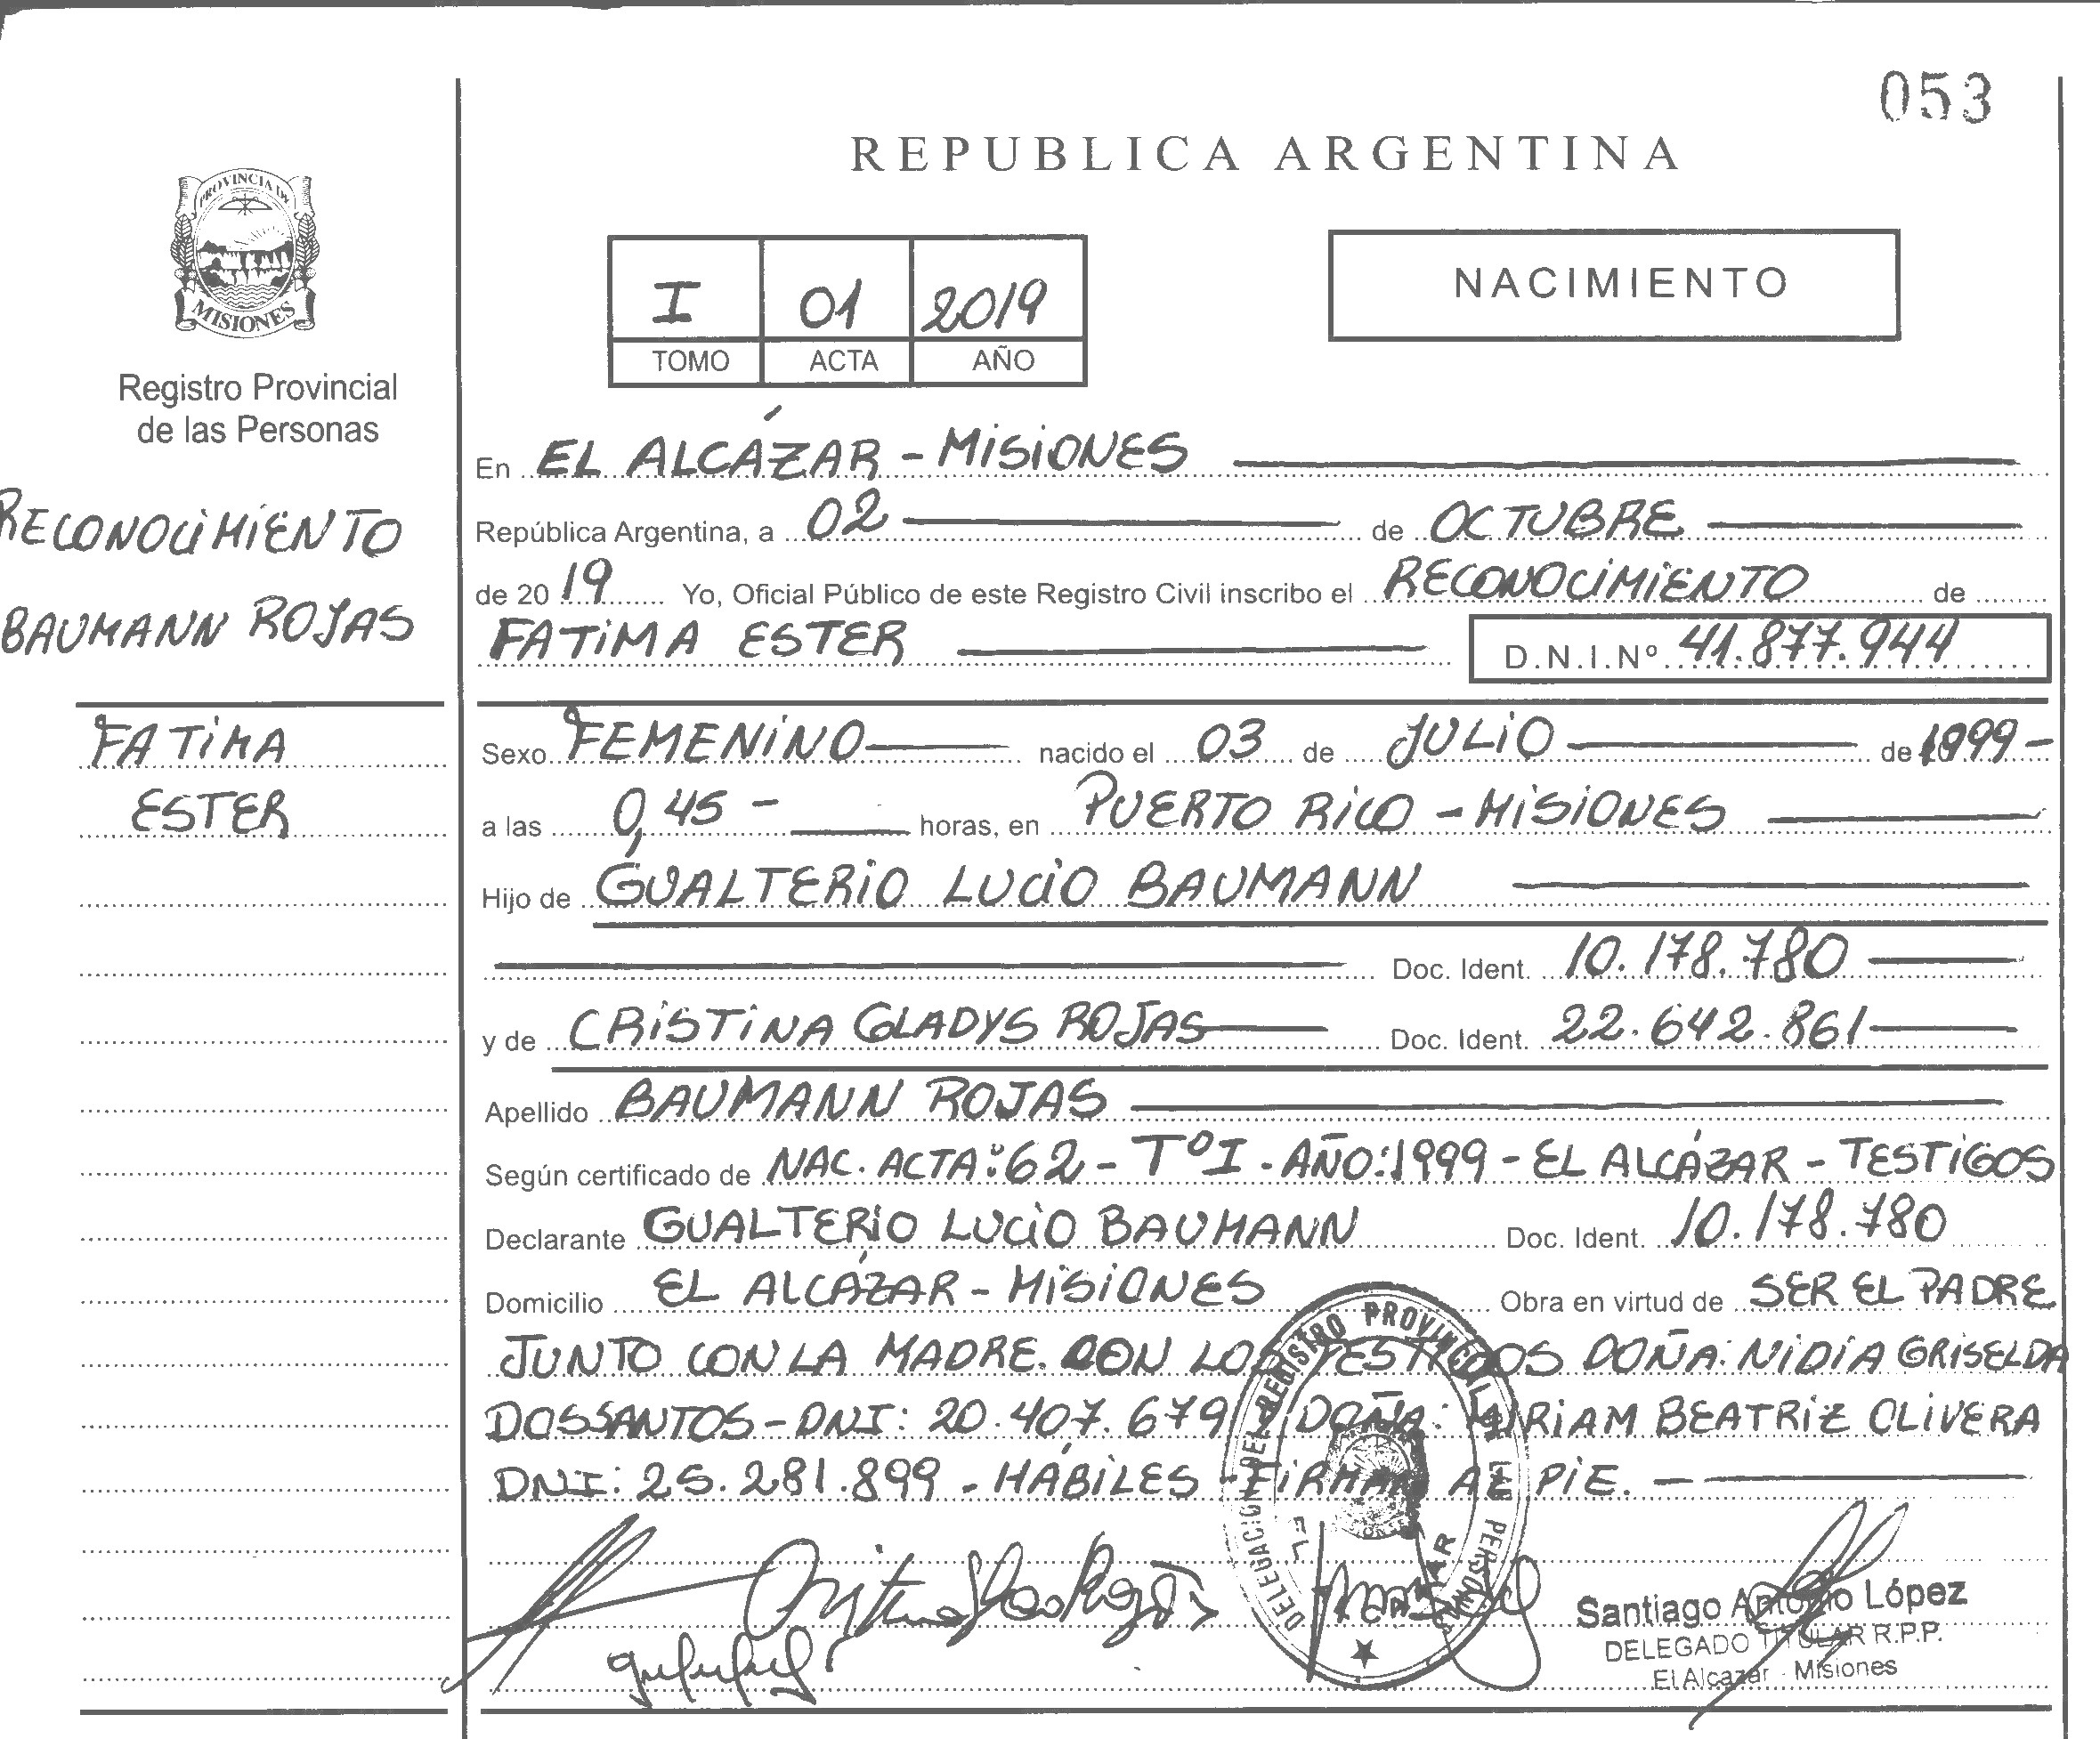 053
REPUBLICA ARGENTINA
PROVINCIA DE
MISIONES
Registro Provincial
de las Personas
RECONOCiMiENTO
BAUMANN ROJAS
FATiMA
ESTER
I 01 2019
TOMO ACTA AÑO
NACIMIENTO
En EL ALCÁZAR - MiSiONES
República Argentina, a 02 de OCTUBRE
de 2019 Yo, Oficial Público de este Registro Civil inscribo el RECONOCiMiENTO de
FATiMA ESTER D.N.I.Nº 41.877.944
Sexo FEMENiNO nacido el 03 de JULiO de 1999-
a las 0,45 - horas, en PUERTO RiCO - MiSiONES
Hijo de GUALTERiO LUCiO BAUMANN
Doc. Ident. 10.178.780
y de CRiSTiNA GLADYS ROJAS Doc. Ident. 22.642.861
Apellido BAUMANN ROJAS
Según certificado de NAC. ACTA:62 - TºI - AÑO:1999 - EL ALCÁZAR - TESTiGOS
Declarante GUALTERiO LUCiO BAUMANN Doc. Ident. 10.178.780
Domicilio EL ALCÁZAR - MiSiONES Obra en virtud de SER EL PADRE
JUNTO CON LA MADRE. CON LOS TESTiGOS DOÑA: NiDiA GRiSELDA
DOSSANTOS - DNI: 20.407.679 Y DOÑA: MiRiAM BEATRiZ OLiVERA
DNI: 25.281.899 - HÁBiLES - FiRMAN AL PiE. -
DELEGACION DEL REGISTRO PROVINCIAL DE LAS PERSONAS
EL ALCAZAR
Santiago Antonio López
DELEGADO TITULAR R.P.P.
El Alcazar - Misiones